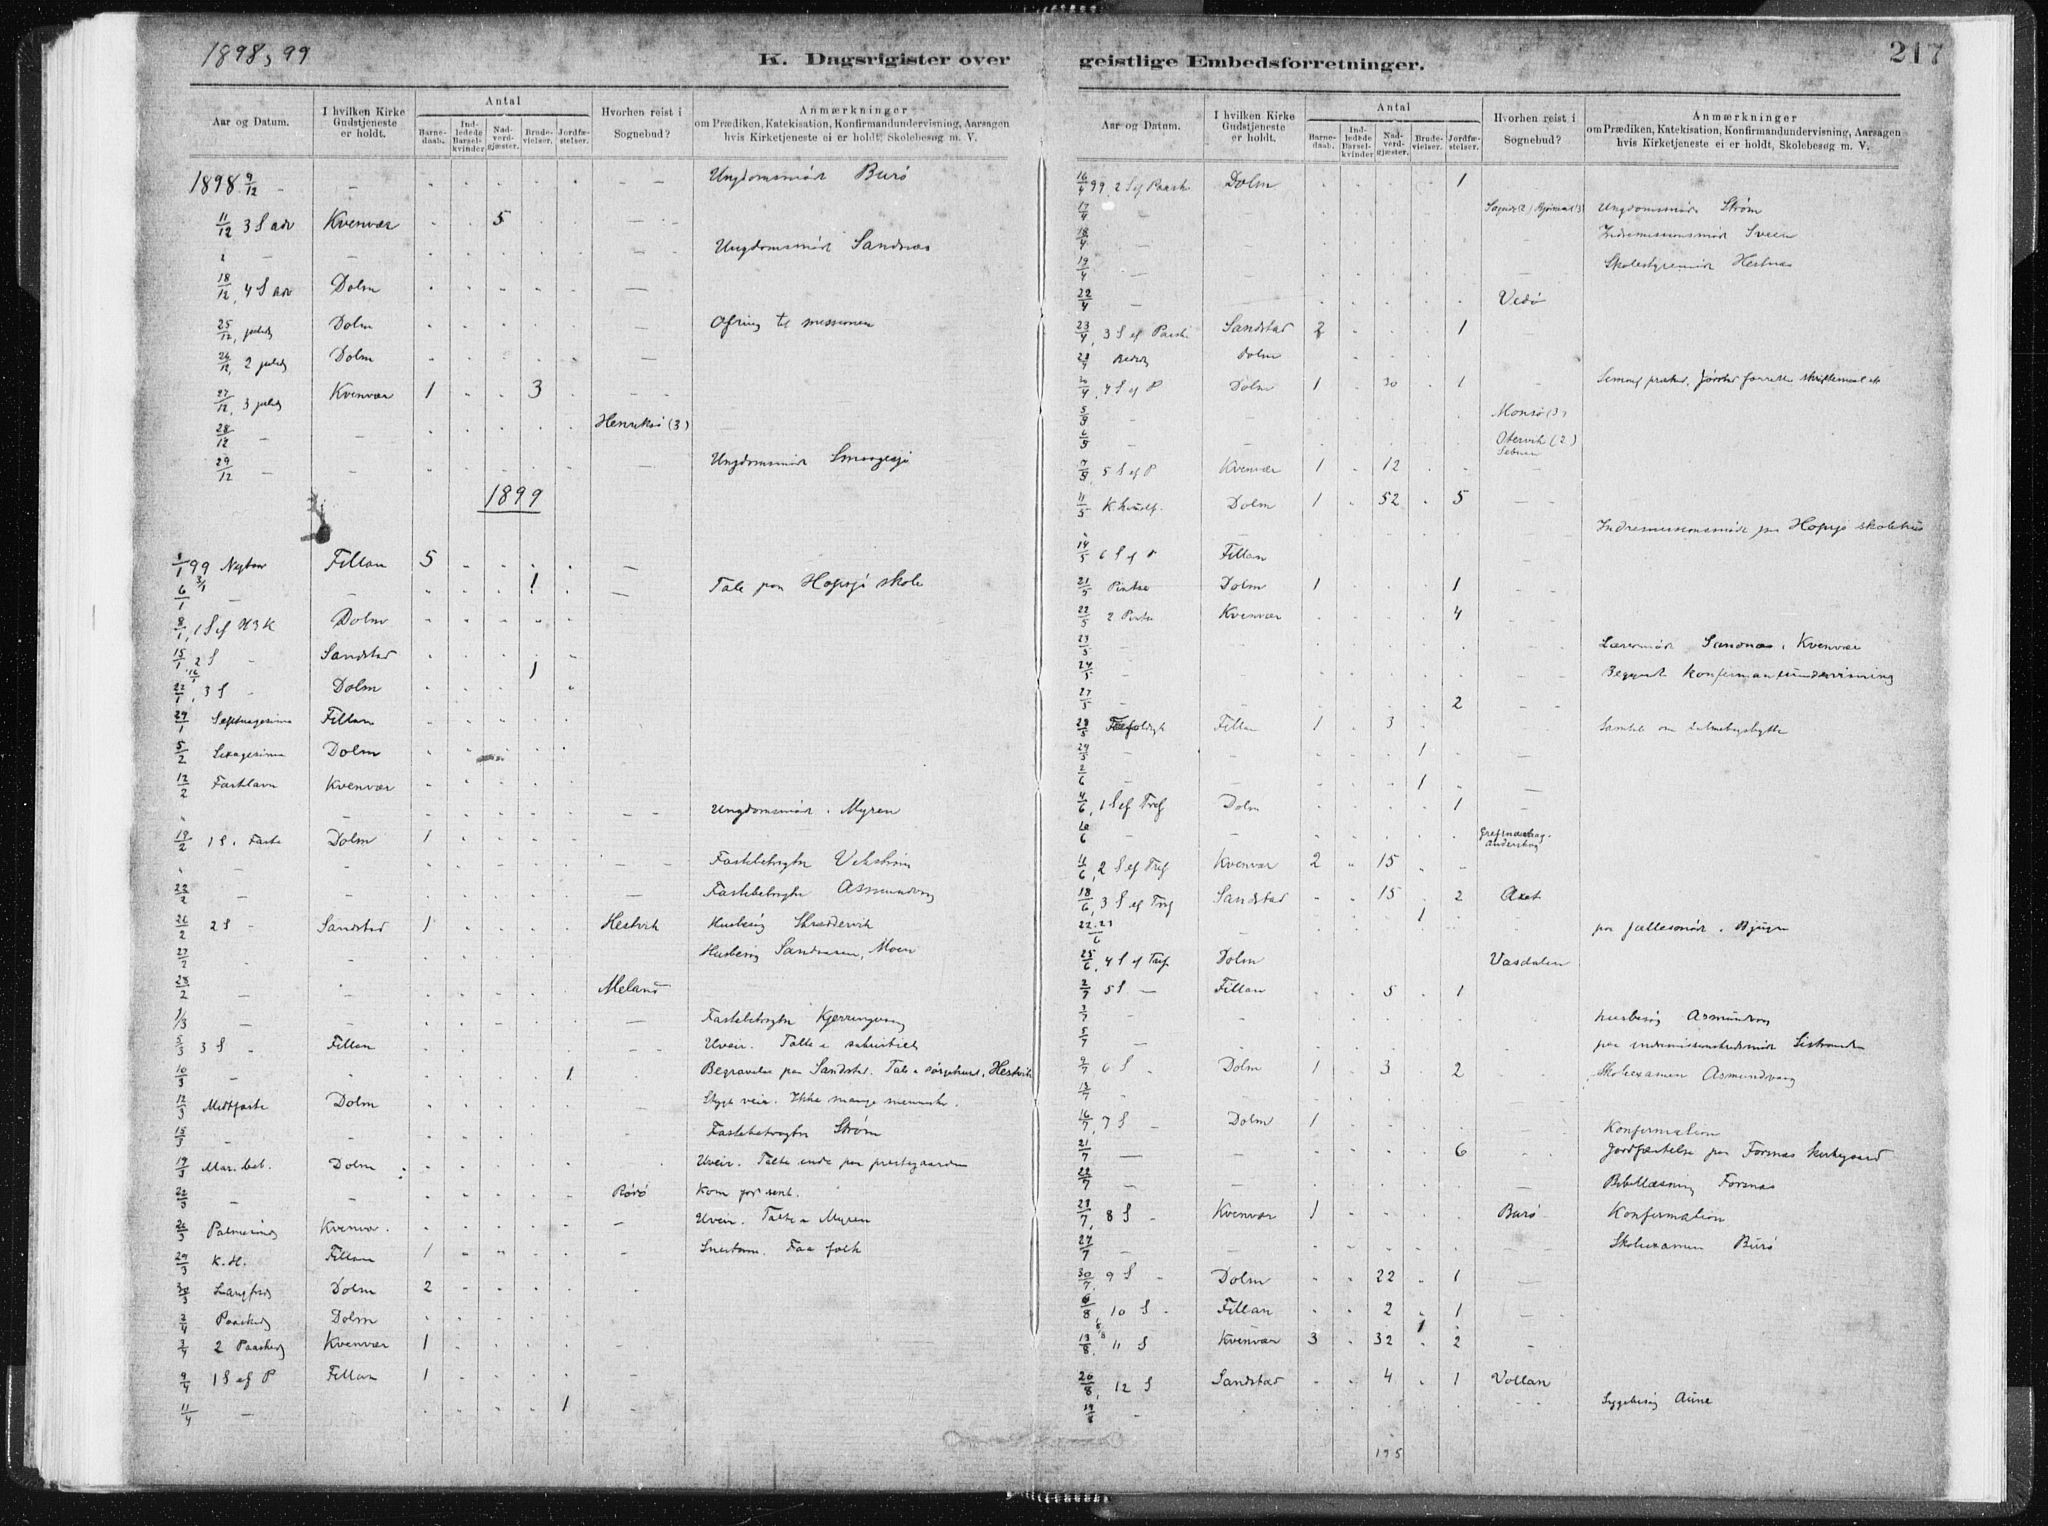 1898, 99
K. Dagsrigister over
geistlige Embedsforretninger.
217
Aar og Datum.
I hvilken Kirke Gudstjeneste er holdt.
Antal
Barne-daab.
Ind-ledede Barsel-kvinder
Nad-verd-gjæster.
Brude-vielser.
Jordfæ-stelser.
Hvorhen reist i Sognebud?
Anmærkninger
om Prædiken, Katekisation, Konfirmandundervisning, Aarsagen
hvis Kirketjeneste ei er holdt, Skolebesøg m. V.
1898 9/12 - - Ungdomsmøde Burø
11/12 3 S adv Kvenvær 5
- - Ungdomsmøde Sandnæs
18/12, 4 S adv Dolm
25/12, juled Dolm Ofring til missionen
26/12, 2 juled Dolm
27/12, 3 juled Kvenvær 1 3
28/12 - - Henriksø (3)
29/12 - - Ungdomsmøde
1899
1/1 99 Nytaar Fillan 5
3/1 1
6/1 - - Tale paa Hopsjø skole
8/1, 1 S ef H3K Dolm
15/1, 2 S - Sandstad
1
22/1, 3 S - Dolm
29/1 Septuagesima Fillan
5/2 Sexagesima Dolm
12/2 Fastelavn Kvenvær
- Ungdomsmøde i Myren
19/2 1 S i Faste Dolm 1
- - Fastebetragtn Vikstrøm
22/2 - - Fastebetragtn Asmundvag
26/2 2 S - Sandstad 1 Hestvik Husbesøg
27/2 - - Husbesøg Sandnesen, Moen
28/2 - - Meland
1/3 - - Fastebetragtn Kjerringvag
5/3 3 S - Fillan Uveir. Talte i sakristiet
10/3 - - 1 Begravelse paa Sandstad. Tale i sørgehuset, Hestvik
12/3 Midtfaste Dolm Stygt veir. Ikke mange mennesker.
15/3 - - Fastebetragtn Strøm
19/3 Mar. beb. Dolm Uveir. Talte inde paa prestegaarden
22/3 - - Rørø Kom for sent.
26/3 Palmesøndg Kvenvær Uveir. Talte i Myren
29/3 K.H. Fillan 1 Snestorm. Faa folk
30/3 Langfred Dolm 2
2/4 Paaskedg Dolm
3/4 2 Paaskedg Kvenvær 1
9/4 1 S ef P Fillan 1
11/4 - 1
Aar og Datum.
I hvilken Kirke Gudstjeneste er holdt.
Antal
Barne-daab.
Ind-ledede Barsel-kvinder
Nad-verd-gjæster.
Brude-vielser.
Jordfæ-stelser.
Hvorhen reist i Sognebud?
Anmærkninger
om Prædiken, Katekisation, Konfirmandundervisning, Aarsagen
hvis Kirketjeneste ei er holdt, Skolebesøg m. V.
16/4 99, 2 S ef Paaske Dolm 1
17/4 - Ungdomsmøde Strøm
18/4 - Indremissionsmøde Sveen
19/4 - Skolestyremøde Hestnæs
22/4 - Vedø
23/4, 3 S ef Paaske Sandstad 2 1
28/4 Bededg Dolm
30/4, 4 S ef P Dolm 1 30 1
5/5 - - Monsø (3)
6/5 - - Otervik (2)
7/5, 5 S ef P Kvenvær 1 12
11/5 K himlf. Dolm 1 52 5
Indremissionsmøde paa Hopsjø skolehus
14/5 6 S ef P Fillan
21/5 Pintse Dolm 1 1
22/5 2 Pintse Kvenvær 4
23/5 - Læremøde Sandnæs i Kvenvær
24/5 - Begyndt konfirmantundervisning
27/5 - - 2
28/5 Trefoldigh Fillan 1 3
29/5 - 1
2/6 - - 1
4/6, 1 S ef Tref Dolm 1
10/6 - -
11/6, 2 S ef Tref Kvenvær 2 15
18/6, 3 S ef Tref Sandstad 15 2 Axet
22-23/6 - 1 paa fællesmøde i Bjugn
25/6, 4 S ef Tref Dolm Vasdalen
2/7 5 S - Fillan 5 1
3/7 - - husbesøg Asmundvag
5/7 - -
9/7 6 S - Dolm 1 3 2
13/7 - Skoleexamen Asmundvag
16/7, 7 S Dolm 1 Konfirmation
21/7 - - 6 Jordfæstelse paa Forsnæs kirkegaard
22/7 - - Bibellæsning Forsnæs
23/7, 8 S - Kvenvær 1 Burø Konfirmation
24/7 - - Skoleexamen Burø
30/7, 9 S - Dolm 22 1
6/8 10 S - Fillan 2 1
1
13/8, 11 S Kvenvær 3 32 2
20/8, 12 S Sandstad 4 1 Vollan
- Sygebesøg Aune
195